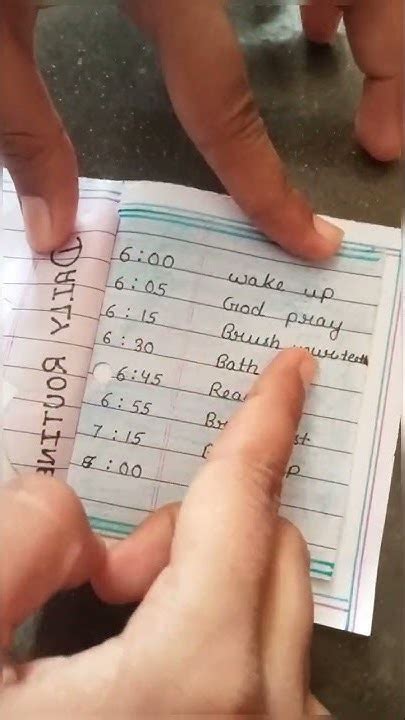 DAILY ROUTINE
6:00 wake up
6:05 God pray
6:15 Brush your teeth
6:30 Bath
6:45
6:55
7:15
8:00